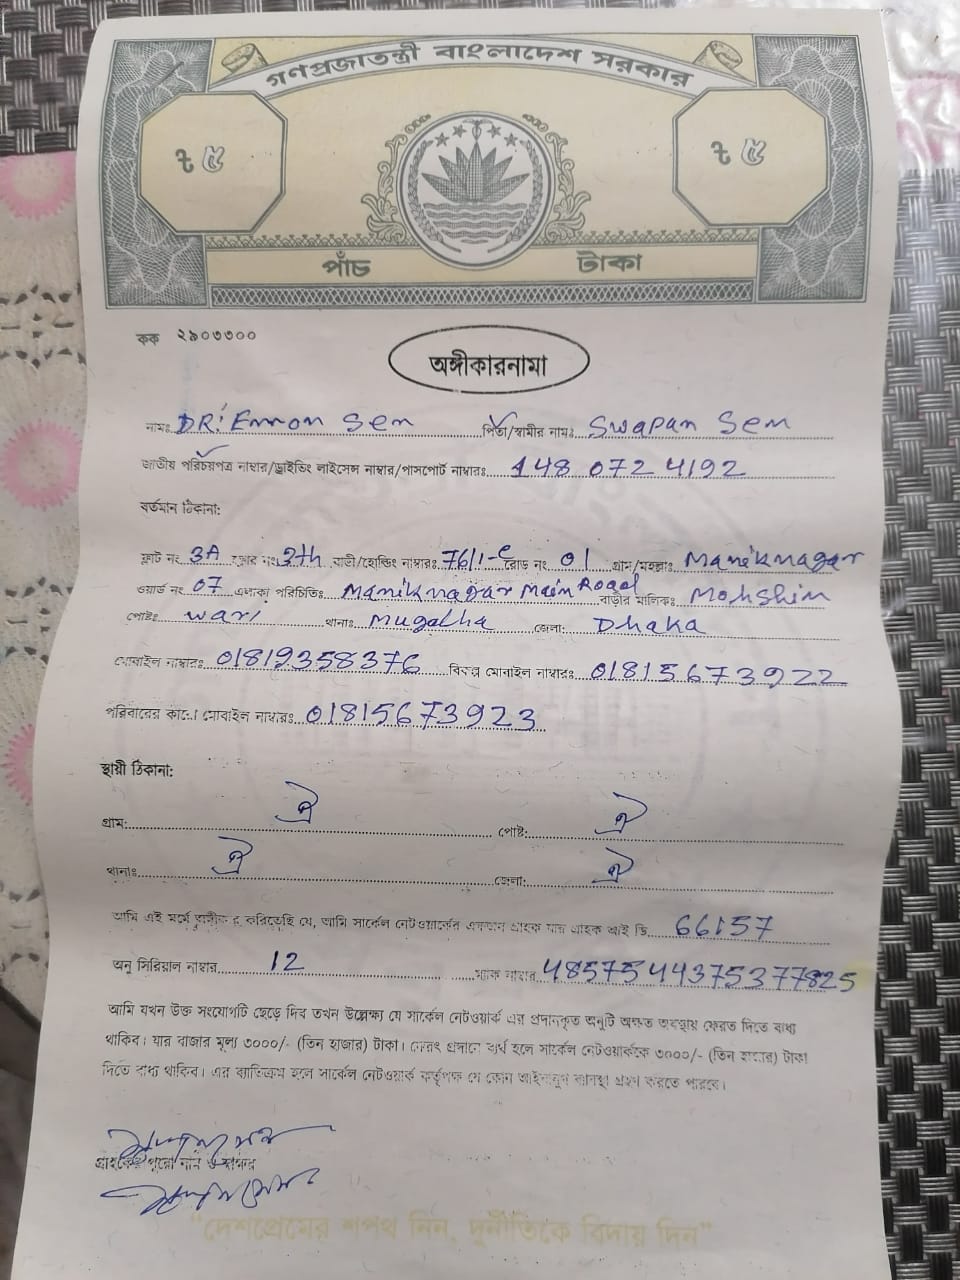 গণপ্রজাতন্ত্রী বাংলাদেশ সরকার
৳ ৫ ৳ ৫
পাঁচ টাকা
কক ২৯০৩৩০০
অঙ্গীকারনামা
নামঃ DR: Emon Sen পিতা/স্বামীর নামঃ Swapan Sen
জাতীয় পরিচয়পত্র নাম্বার/ড্রাইভিং লাইসেন্স নাম্বার/পাসপোর্ট নাম্বারঃ 148 072 4192
বর্তমান ঠিকানা:
ফ্লাট নং 3A বাড়ী/হোল্ডিং নাম্বারঃ 76/1-C রোড নং 01 গ্রাম/মহল্লাঃ Maniknagar
ওয়ার্ড নং 07 এলাকা পরিচিতিঃ Maniknagar Main Road বাড়ীর মালিকঃ Mohshin
পোষ্টঃ wari থানাঃ Mugdha জেলা: Dhaka
মোবাইল নাম্বারঃ 01819358376 বিকল্প মোবাইল নাম্বারঃ 01815673922
পরিবারের কারো মোবাইল নাম্বারঃ 01815673923
স্থায়ী ঠিকানা:
গ্রাম: ঐ পোষ্ট: ঐ
থানাঃ ঐ জেলা: ঐ
আমি এই মর্মে অঙ্গীকার করিতেছি যে, আমি সার্কেল নেটওয়ার্কের একজন গ্রাহক যার গ্রাহক আই ডি 66157
অনু সিরিয়াল নাম্বার 12 ম্যাক নাম্বার 4857544375377825
আমি যখন উক্ত সংযোগটি ছেড়ে দিব তখন উল্লেক্ষ্য যে সার্কেল নেটওয়ার্ক এর প্রদানকৃত অনুটি অক্ষত অবস্থায় ফেরত দিতে বাধ্য
থাকিব। যার বাজার মূল্য ৩০০০/- (তিন হাজার) টাকা। ফেরৎ প্রদানে ব্যর্থ হলে সার্কেল নেটওয়ার্ককে ৩০০০/- (তিন হাজার) টাকা
দিতে বাধ্য থাকিব। এর ব্যতিক্রম হলে সার্কেল নেটওয়ার্ক কর্তৃপক্ষ যে কোন আইনানুগ ব্যবস্থা গ্রহণ করতে পারবে।
গ্রাহকের পুরো নাম ও স্বাক্ষর
"দেশপ্রেমের শপথ নিন, দুর্নীতিকে বিদায় দিন"